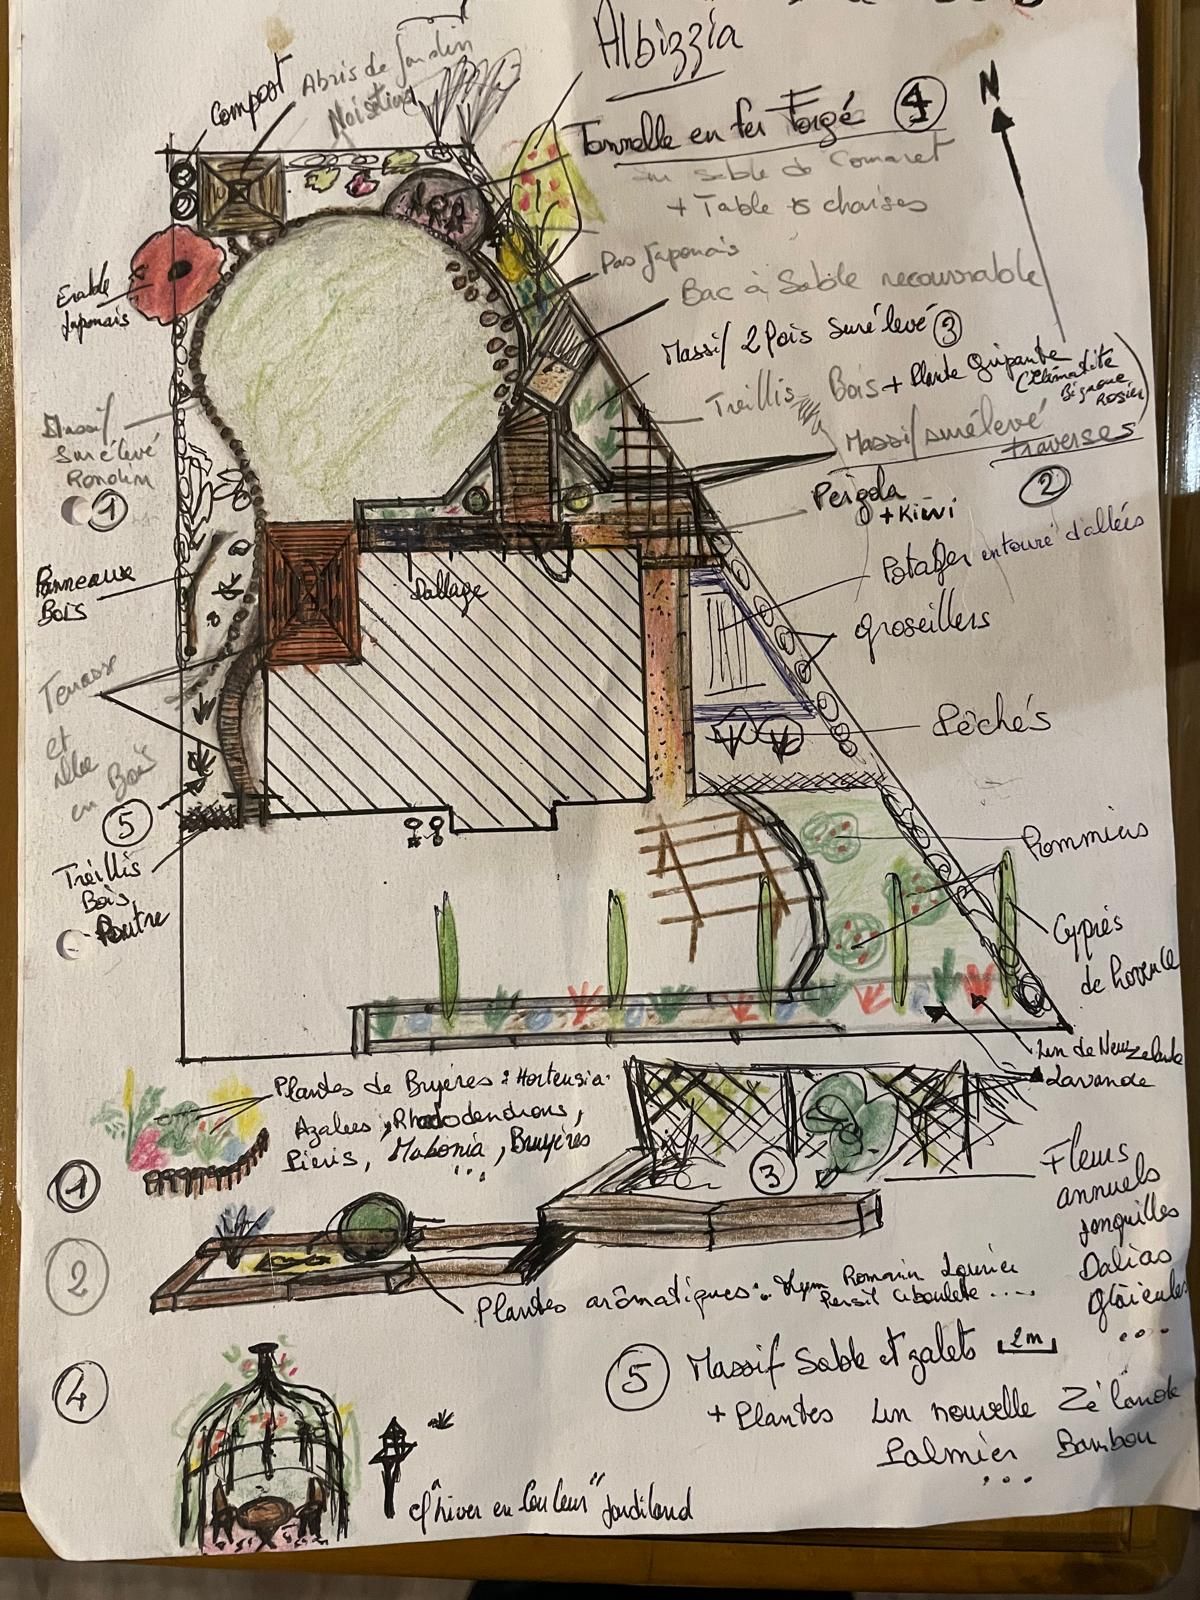 Albizzia
Compost
Abris de Jardin
Noisetier
Tonnelle en fer Forgé 4
Sur sable de Comaret
+ Table & chaises
N
Pas Japonais
Bac à Sable recouvrable
Erable
Japonais
Massif 2 Pois surélevé 3
Treillis Bois + Plante Gripante
(Clématite
Bignone
Rosier)
Massif
Surélevé
Rondin
1
Massif surélevé
traverses
2
Pergola
+ Kiwi
Panneaux
Bois
Dallage
Potager entouré d'allées
Groseillers
Terrasse
et
allée
en Bois
5
Pêchés
Treillis
Bois
Poutre
Pommiers
Cyprés
de Provence
Lin de Neuw Zelande
Lavande
1
Plantes de Bruyères : Hortensia
Azalees, Rhododendrons,
Pieris, Mahonia, Bruyères
...
3
Fleurs
annuels
Jonquilles
Dalias
Glaïeules
...
2
Plantes arômatiques : Thym Romarin Laurier
Persil Ciboulete ....
5 Massif Sable et galets 2m
+ Plantes Lin nouvelle Zélande
Palmier Bambou
...
4
cf "hiver en Couleur" Jardiland